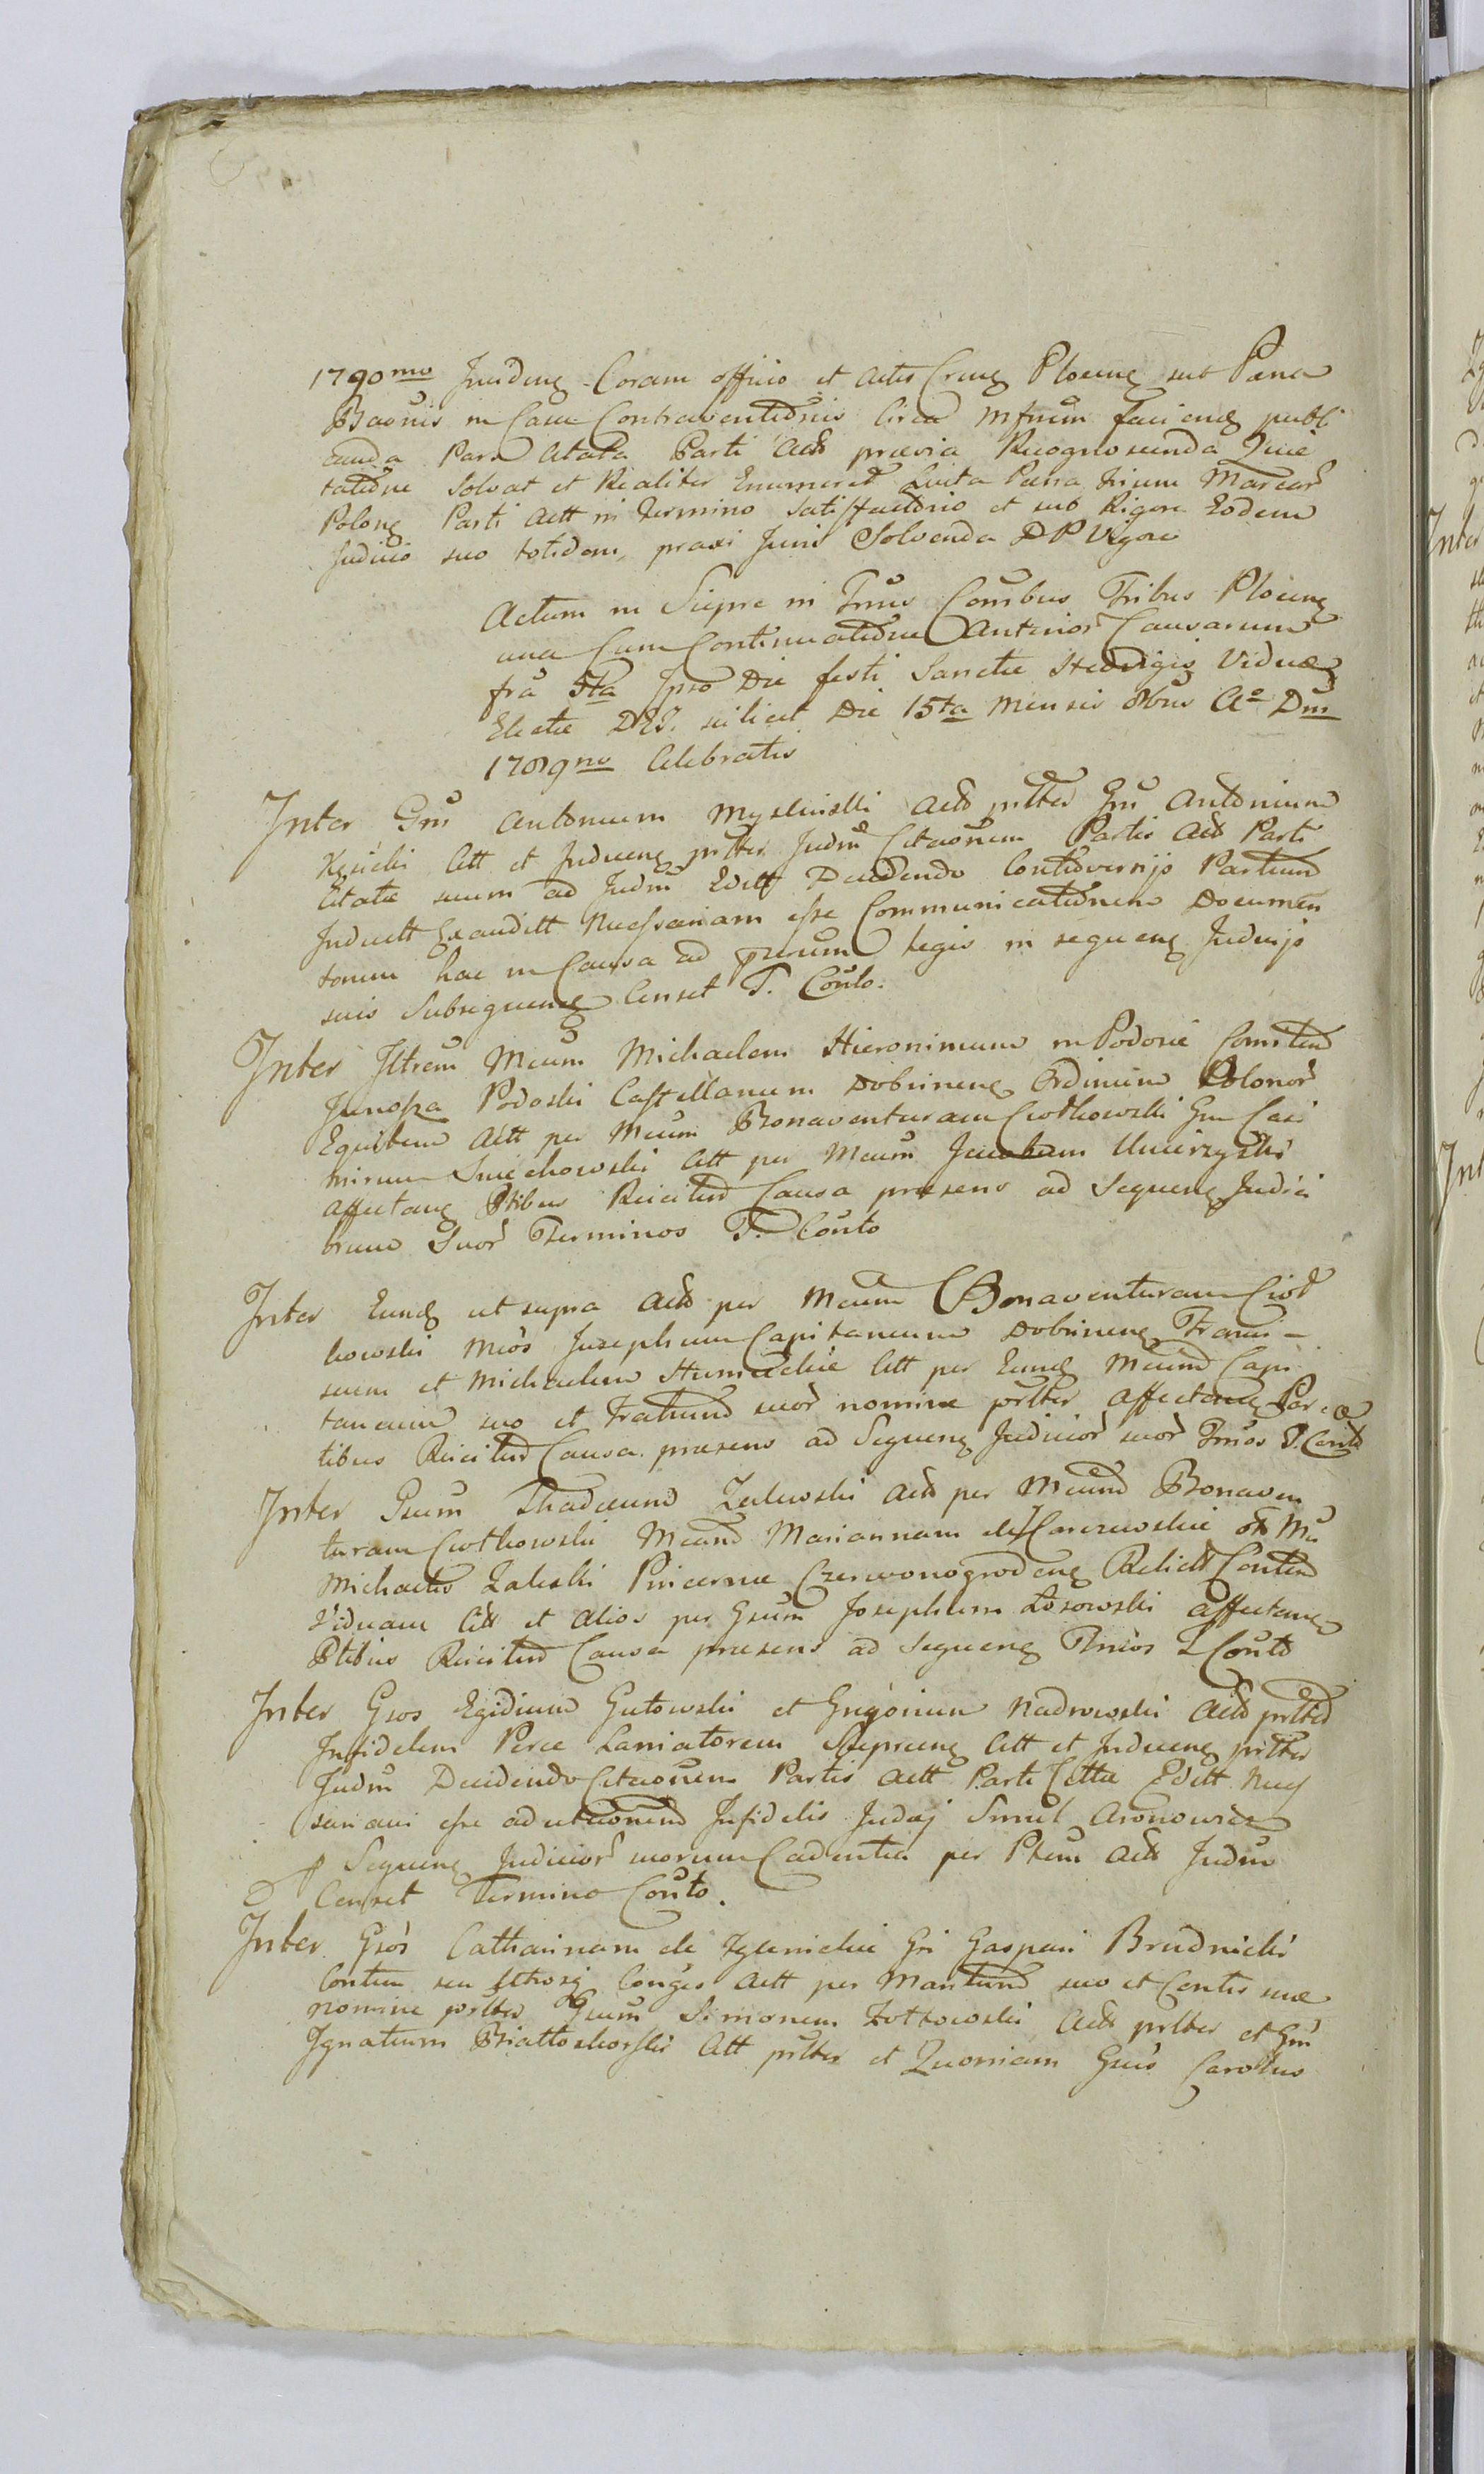 1790mo Incideng Coram officio et actis Creng Ploceng sub Pæna
Bannis in Casu Contraventionis Circa Infrum faciend publi
canda Pars Citata Parti Act prævia Recognoscenda Quie
tatione Solvat et Realiter Enumeret Luita Pæna Trium Marcar
Polong Parti Act in Termino Satisfactorio et sub Rigore Eodem
Judicio suo totidem praxi Juris Solvenda D P Vigore
Actum in Siepre in Trnis Conibus Tribus Ploceng
una Cum Continuatione Anterior Causarum
fra 5ta Ipso Die festi Sanctæ Hedvigis Viduæ
Electæ D E J. scilicet Die 15ta Mensis 8bris Ao Dni
1789no Celebratis
Inter Gm Antonium Mysliński Act prltter Gm Antonium
Kęsicki Citt et Judiceng prltter Judm Citaonem Partis Act Parti
Citatæ suum ad Judm Editt Decidendo Controversijs Partium
Judicett Exauditt Necessariam esse Communicationem Documen
torum hac in Causa ad præsum legis in sequeng Judicijs
suis Subsequeng Censet T. Conto.
Inter Iltrem Mcum Michaelem Hieronimum in Podosie Comitem
Junosza Podoski Castellanum Dobrineng Ordinum Polonor
Equitem Actt per Mcum Bonaventuram Ciotkowski Gm Casi
mirum Smiechowski Citt per Mcum Jacobum
affectang Ptibus Reicitur Causa præsens ad Sequeng Judici
orum Suor Terminos T. Conto
Inter Eund ut supra Act per Mcum Bonaventuram Ciot
kowski Mcos Josephum Capitaneum Dobrineng Franci-
scum et Michaelem Humieckie Citt per Eund Mcum Capi
taneum suo et Fratrum suor nomine prltter affectang Par
tibus Reicitur Causa præsens ad Sequeng Judicior suor Trnos T. Conto
Inter Gsum Thadæum Zulewski Act per Mcum Bonaven
turam Ciotkowski Mcam Mariannam de Karczewskie olt Mci
Michaelis Zaleski Pincernæ Czerwonogrodeng Relict Contem
Viduam Citt et Alios per Gsum Josephum Łosowski affectang
Ptibus Reicitur Causa præsens ad Sequeng Trnos T Conto
Inter Gsos Egidium Gutowski et Grigorium Nadrowski Act prltter
Infidelem Perce Laniatorem Siepreng Citt et Judiceng prltter
Judm Decidendo Citaonem Partis Actt Parti Cittæ Editt Neces
sariam esse adcitaonem Infidelis Judæj Smul Aronowicz
Sequeng Judicior suorum Cadentia per Ptem Act Judm
Censet Termino Conto.
Inter Gsos Catharinam de Zglenickie Gsi Gaspari Brudnicki
Contem seu utrosq Conges Actt per Maritum suo et Contis suæ
nomine prltter Gsum Simonem Żółtowski Act prltter et Gm
Ignatium Białłoskorski Citt prltter et Quoniam Gsus Carolus